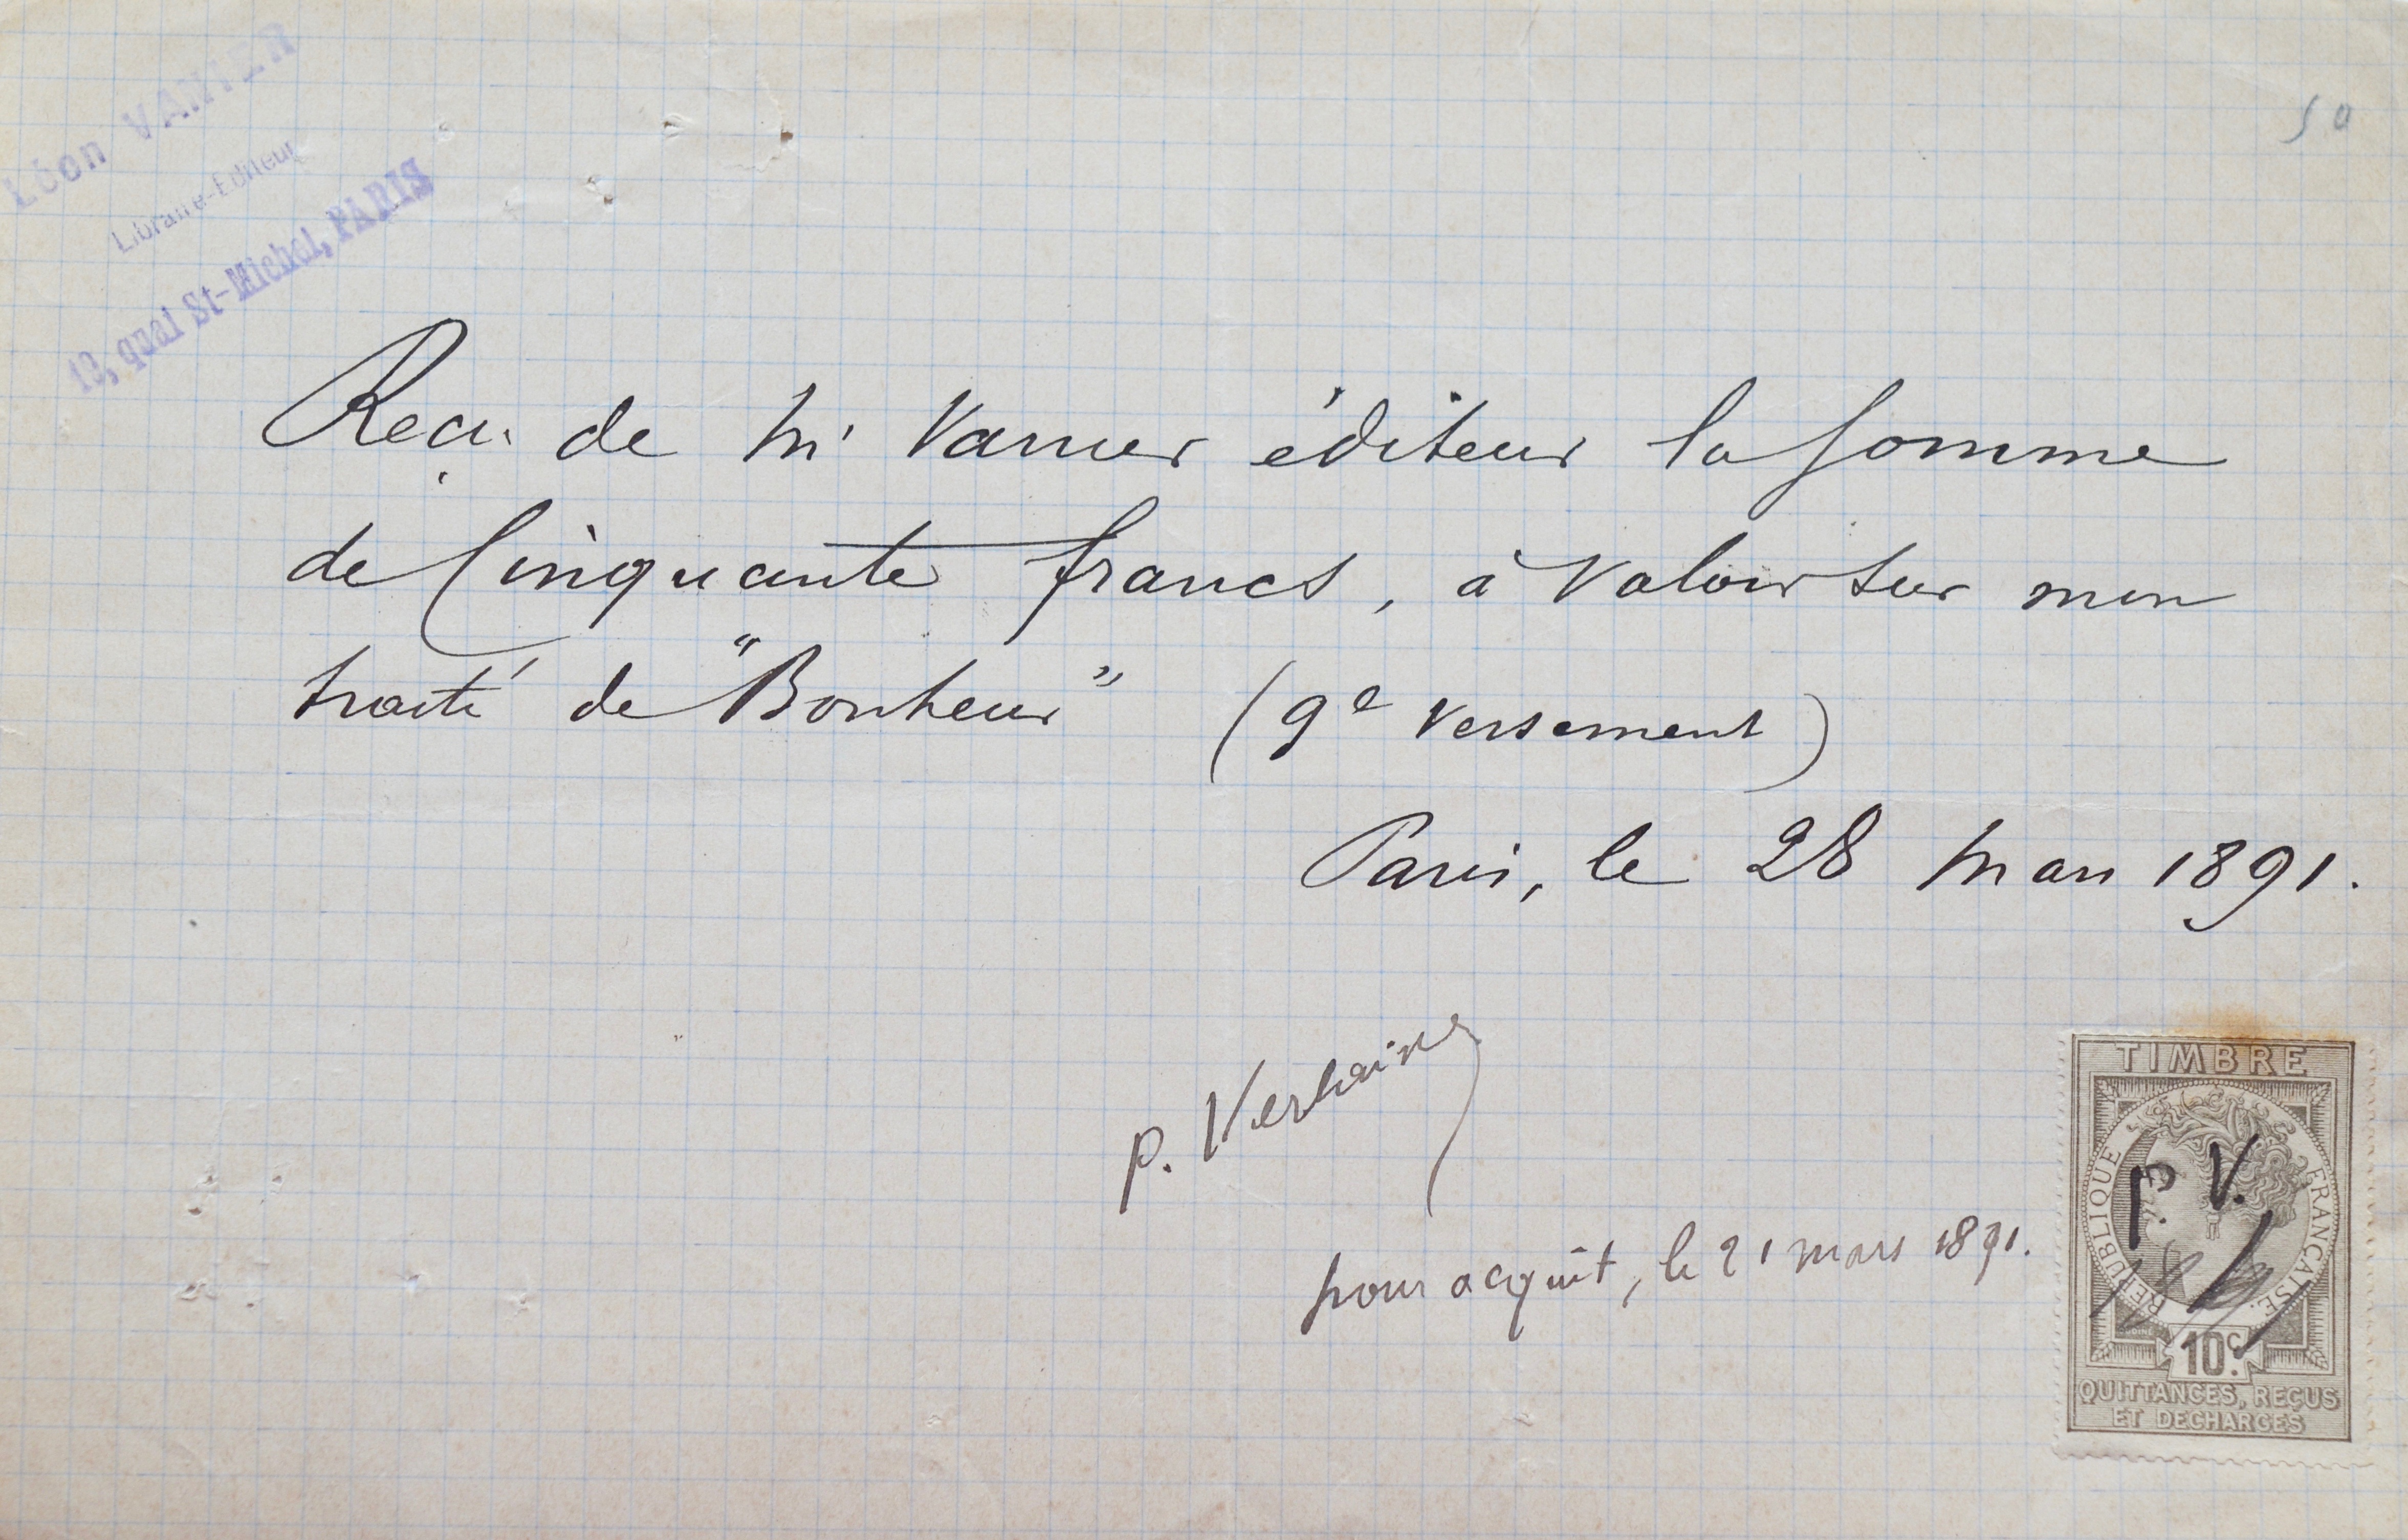 Léon VANIER
Libraire-Editeur
19, quai St-Michel, PARIS
50
Reçu de Mr Vanier éditeur la somme
de Cinquante francs, à valoir sur mon
traité de "Bonheur" (9e versement)
Paris, le 28 Mars 1891.
P. Verlaine
pour acquit, le 21 mars 1891.
TIMBRE
RÉPUBLIQUE FRANÇAISE.
P. V.
10c.
QUITTANCES, REÇUS
ET DECHARGES